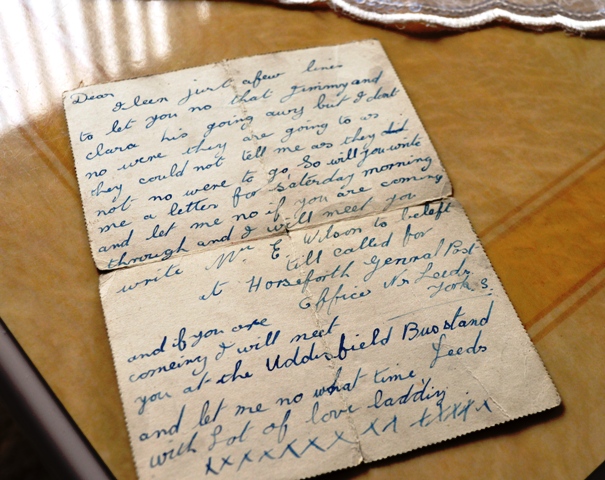 Dear
Ileen just afew lines
to let you no that Jimmy and
clara his going awry but I dont
no were they are going to as
they could not tell me as they did
not no were to go, So will you write
me a letter for Saturday morning
and let me no if you are coming
through and I will meet you
write Mr E. Wilson to beleft
till called for
at Horseforth General Post
Office Nr Leeds
York. S.
and if you are
comeing I will meet
you at the Uddisfield Busstand
Leeds
and let me no what time
with Lot of love laddin
xxxxxxx xx xxxxx